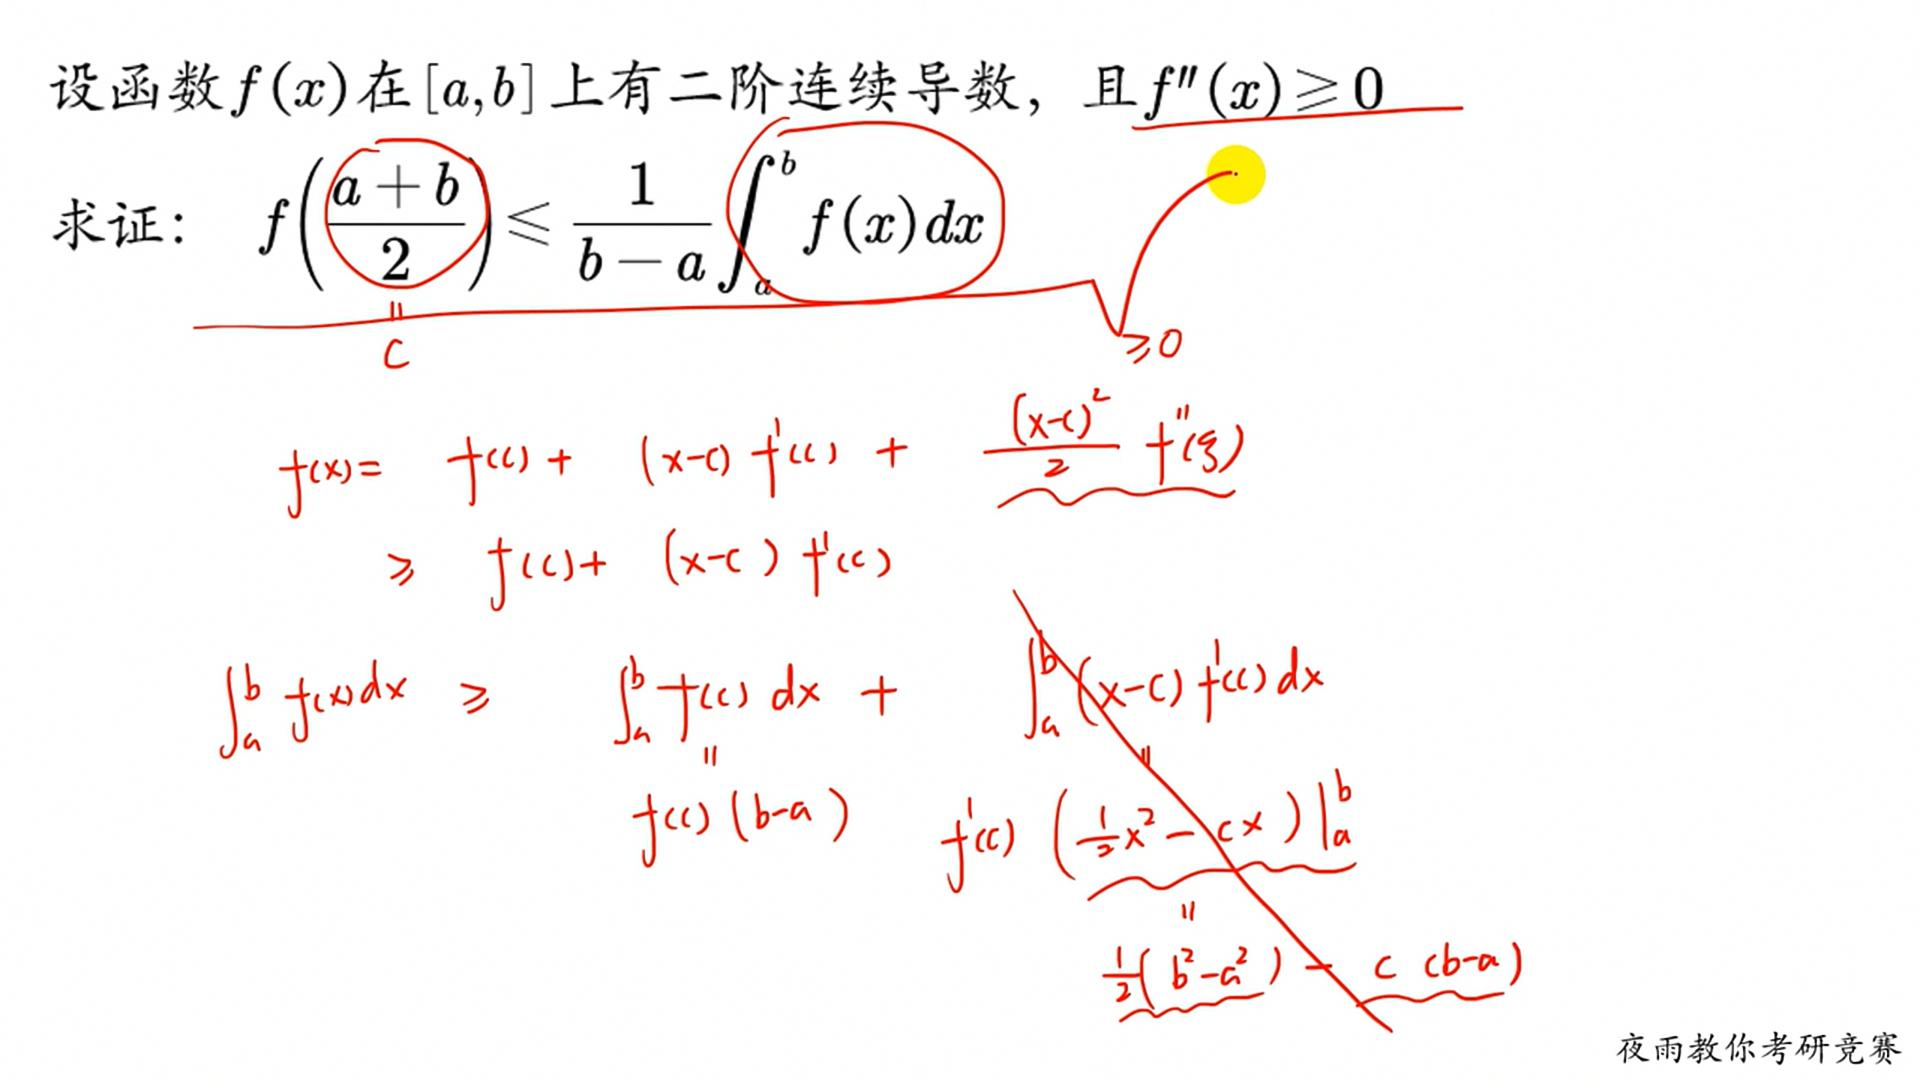 设函数f(x)在[a,b]上有二阶连续导数，且f″(x)≥0
求证：f((a+b)/2)≤1/(b−a)∫_a^b f(x)dx
=
c
≥0
f(x)= f(c)+ (x-c)f'(c) + (x-c)²/2 f''(ξ)
≥ f(c)+ (x-c)f'(c)
∫_a^b f(x)dx ≥ ∫_a^b f(c)dx + ∫_a^b (x-c)f'(c)dx
= =
f(c)(b-a) f'(c)(1/2x²-cx)|_a^b
=
1/2(b²-a²) - c(b-a)
夜雨教你考研竞赛